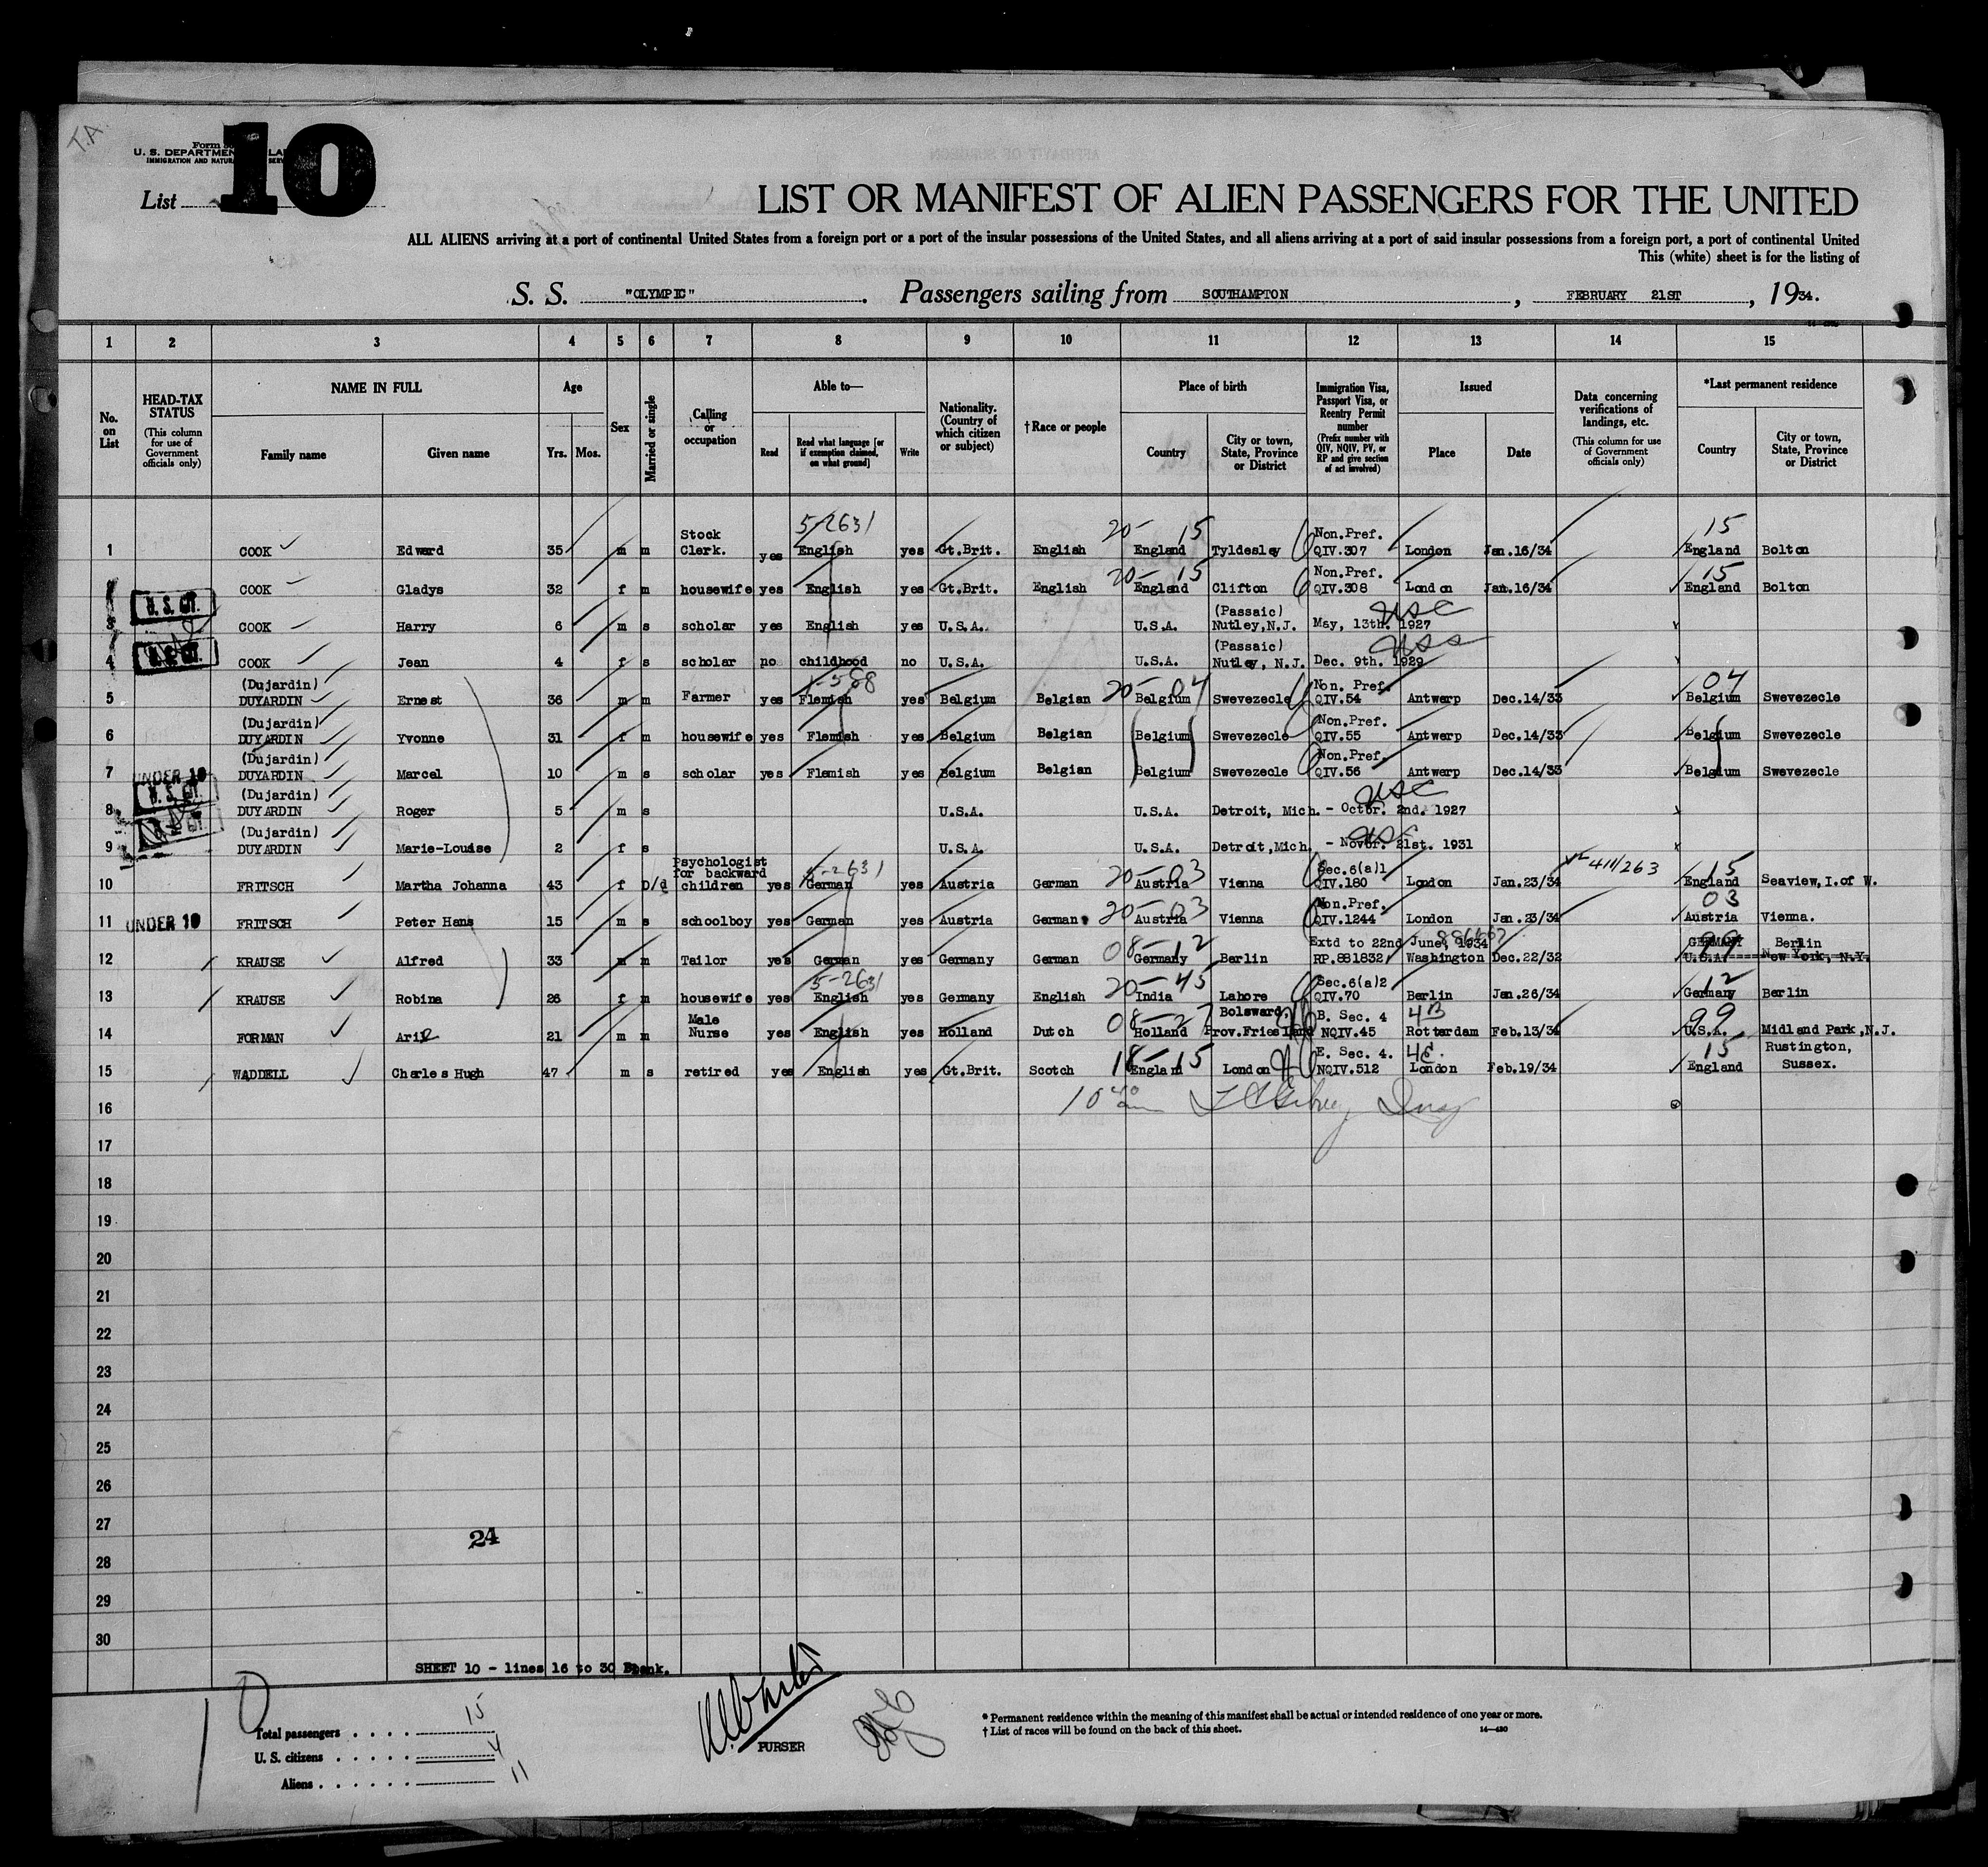 T.A.
Form 500
U. S. DEPARTMENT OF LABOR
IMMIGRATION AND NATURALIZATION SERVICE
List 10
LIST OR MANIFEST OF ALIEN PASSENGERS FOR THE UNITED
ALL ALIENS arriving at a port of continental United States from a foreign port or a port of the insular possessions of the United States, and all aliens arriving at a port of said insular possessions from a foreign port, a port of continental United
This (white) sheet is for the listing of
S. S. "OLYMPIC". Passengers sailing from SOUTHAMPTON, FEBRUARY 21ST, 1934.
1 2 3 4 5 6 7 8 9 10 11 12 13 14 15
No. on List
HEAD-TAX STATUS (This column for use of Government officials only)
NAME IN FULL Family name Given name
Age Yrs. Mos.
Sex
Married or single
Calling or occupation
Able to— Read Read what language [or if exemption claimed, on what ground] Write
Nationality. (Country of which citizen or subject)
†Race or people
Place of birth Country City or town, State, Province or District
Immigration Visa, Passport Visa, or Reentry Permit number (Prefix number with QIV, NQIV, PV, or RP and give section of act involved)
Issued Place Date
Data concerning verifications of landings, etc. (This column for use of Government officials only)
*Last permanent residence Country City or town, State, Province or District
5-2631 20-15 15
1 COOK Edward 35 m m Stock Clerk. yes English yes Gt.Brit. English England Tyldesley Non.Pref. QIV.307 London Jan.16/34 England Bolton
20-15 15
2 COOK Gladys 32 f m housewife yes English yes Gt.Brit. English England Clifton Non.Pref. QIV.308 London Jan.16/34 England Bolton
U.S. CIT. USC
3 COOK Harry 6 m s scholar yes English yes U.S.A. U.S.A. (Passaic) Nutley,N.J. May, 13th. 1927
U.S. CIT. USC
4 COOK Jean 4 f s scholar no childhood no U.S.A. U.S.A. (Passaic) Nutley, N.J. Dec. 9th. 1929
20-04 04
5 (Dujardin) DUYARDIN Ernest 36 m m Farmer yes Flemish yes Belgium Belgian Belgium Swevezecle Non. Pref. QIV.54 Antwerp Dec.14/33 Belgium Swevezecle
6 (Dujardin) DUYARDIN Yvonne 31 f m housewife yes Flemish yes Belgium Belgian Belgium Swevezecle Non.Pref. QIV.55 Antwerp Dec.14/33 Belgium Swevezecle
UNDER 16
7 (Dujardin) DUYARDIN Marcel 10 m s scholar yes Flemish yes Belgium Belgian Belgium Swevezecle Non.Pref. QIV.56 Antwerp Dec.14/33 Belgium Swevezecle
U.S. CIT. USC
8 (Dujardin) DUYARDIN Roger 5 m s U.S.A. U.S.A. Detroit, Mich. - Octbr. 2nd. 1927
USC
9 (Dujardin) DUYARDIN Marie-Louise 2 f s U.S.A. U.S.A. Detroit,Mich. - Novbr. 21st. 1931
5-2631 20-03 15
10 FRITSCH Martha Johanna 43 f D/d Psychologist for backward children yes German yes Austria German Austria Vienna Sec.6(a)1 QIV.180 London Jan.23/34 England Seaview,I.of W.
20-03 03
11 UNDER 16 FRITSCH Peter Hans 15 m s schoolboy yes German yes Austria German Austria Vienna Non.Pref. QIV.1244 London Jan.23/34 Austria Vienna.
08-12 99
12 KRAUSE Alfred 33 m m Tailor yes German yes Germany German Germany Berlin Extd to 22nd June, 1934 RP.881832 Washington Dec.22/32 GERMANY Berlin U.S.A. New York, N.Y.
5-2631 20-45 12
13 KRAUSE Robina 26 f m housewife yes English yes Germany English India Lahore Sec.6(a)2 QIV.70 Berlin Jan.26/34 Germany Berlin
08-27 4B 99
14 FORMAN Arie 21 m m Male Nurse yes English yes Holland Dutch Holland Bolsward, Prov.Friesland B. Sec. 4 NQIV.45 Rotterdam Feb.13/34 U.S.A. Midland Park,N.J.
18-15 4E. 15
15 WADDELL Charles Hugh 47 m s retired yes English yes Gt.Brit. Scotch England London E. Sec. 4. NQIV.512 London Feb.19/34 England Rustington, Sussex.
16
17
18
19
20
21
22
23
24
25
26
27
24
28
29
30
SHEET 10 - lines 16 to 30 Blank.
10
Total passengers 15
U. S. citizens 4
Aliens 11
PURSER
* Permanent residence within the meaning of this manifest shall be actual or intended residence of one year or more.
† List of races will be found on the back of this sheet. 14—430